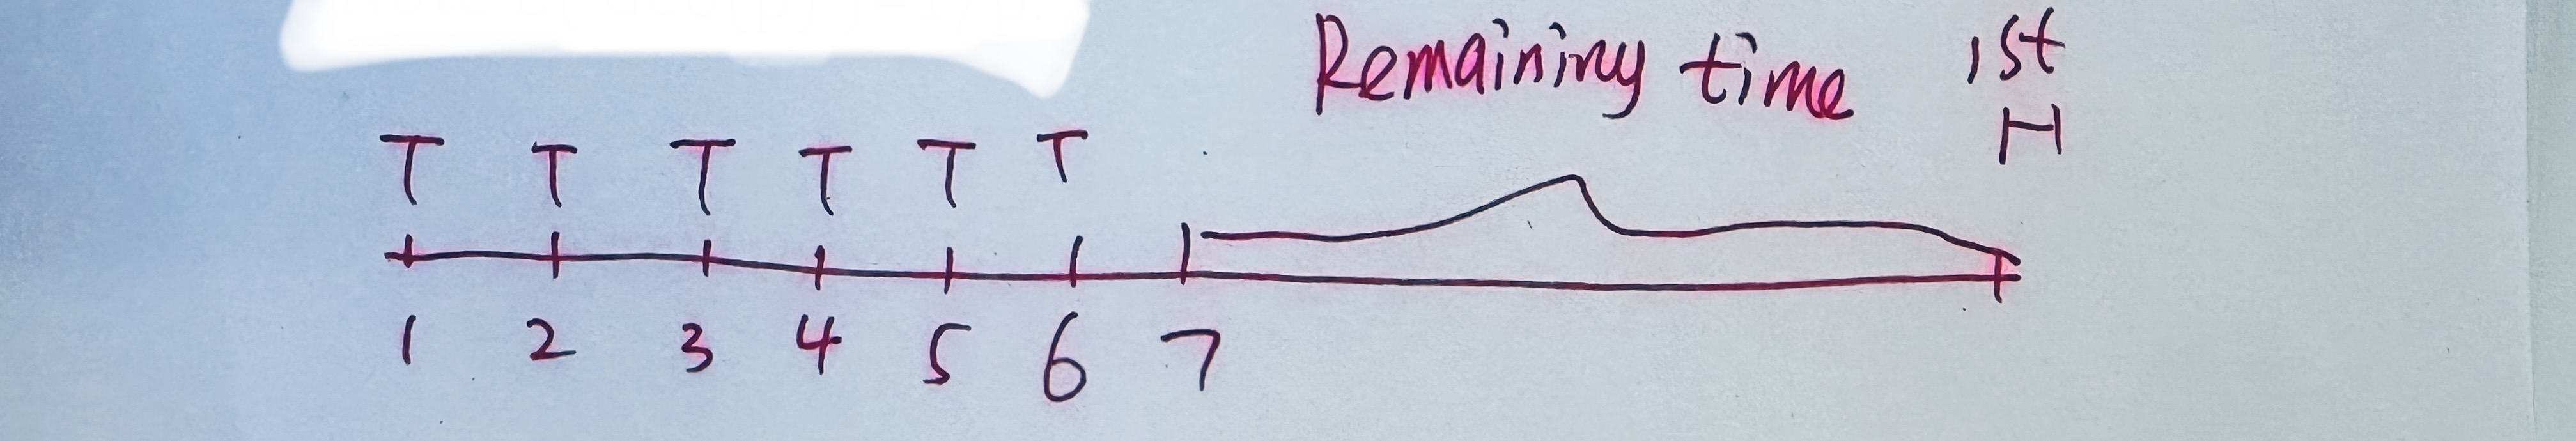 Remaining time 1st
H
T T T T T T
1 2 3 4 5 6 7